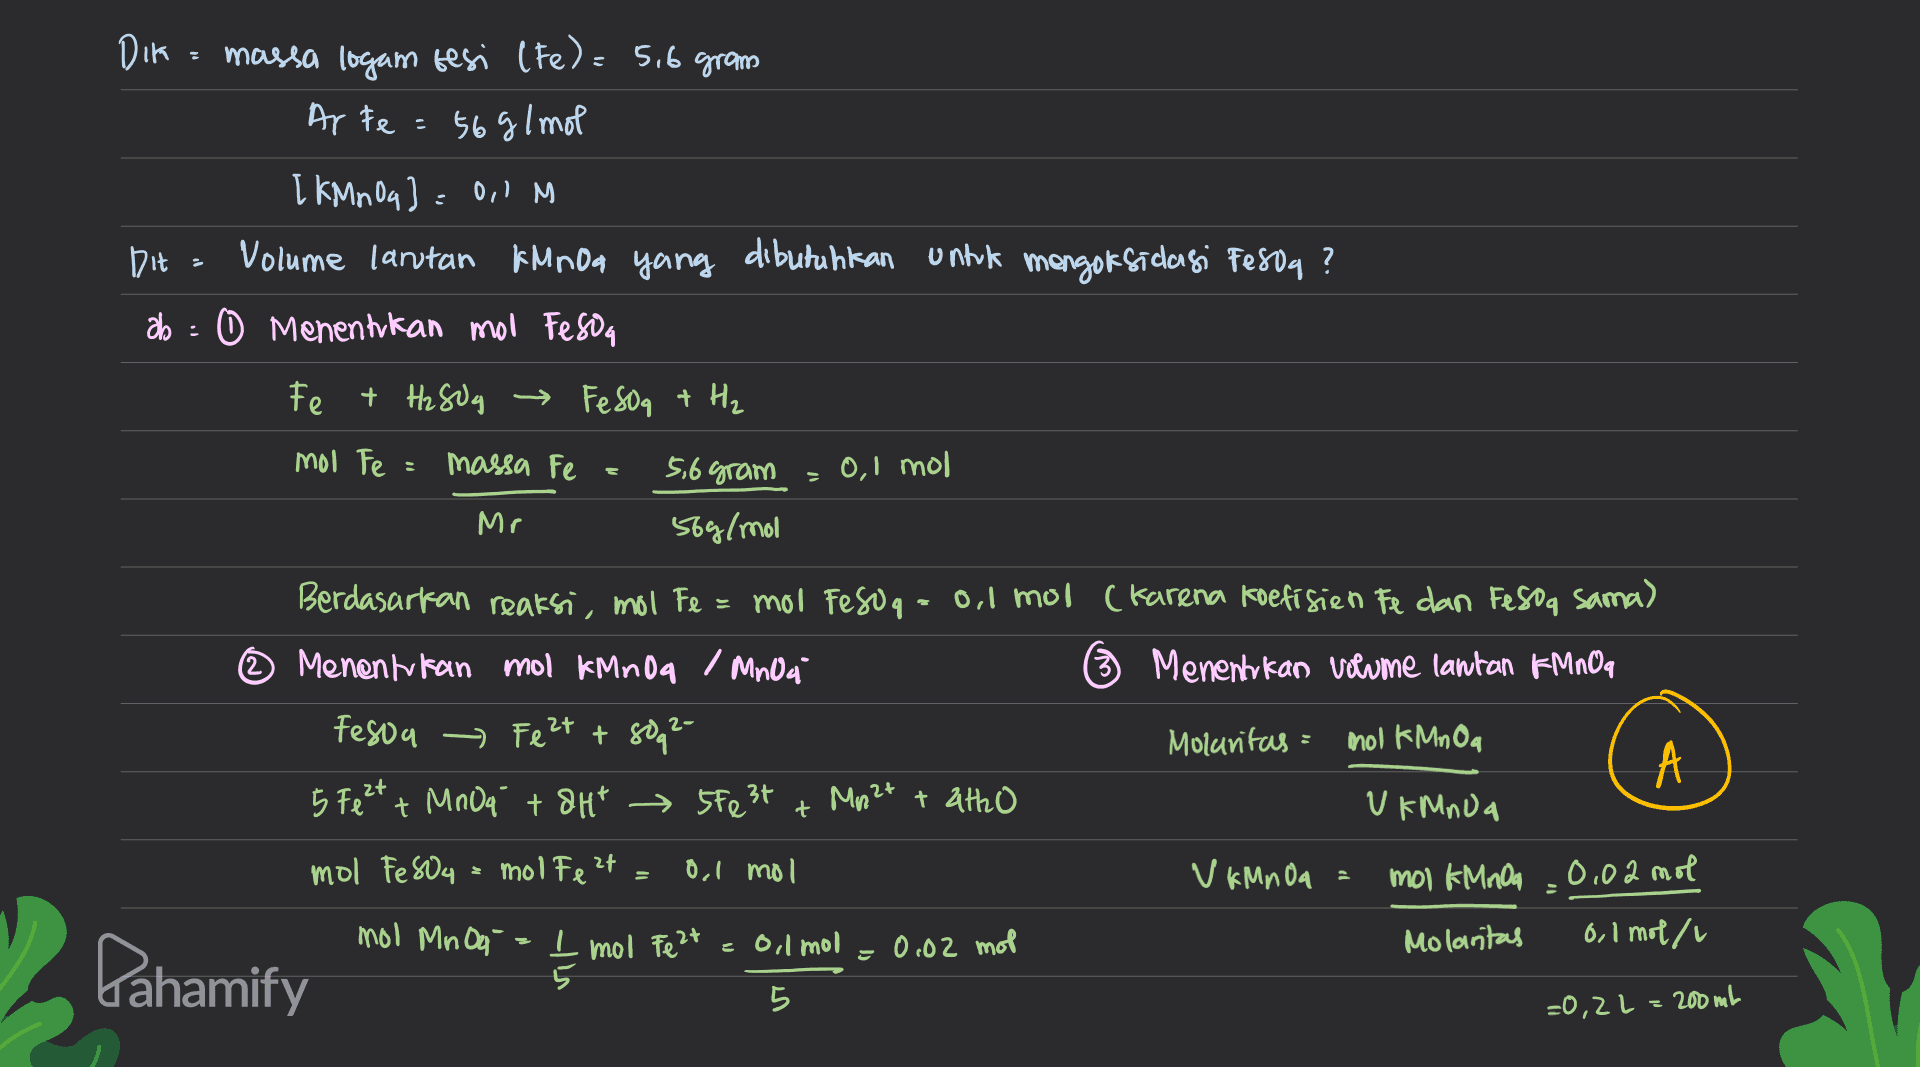 Dik = massa logam besi (Fe) = 5,6 gram
Ar Fe = 56 g/mol
[KMnO4] = 0,1 M
Dit = Volume larutan KMnO4 yang dibutuhkan untuk mengoksidasi FeSO4 ?
Jb = ① Menentukan mol FeSO4
Fe + H2SO4 → FeSO4 + H2
mol Fe = massa Fe / Mr = 5,6 gram / 56g/mol = 0,1 mol
Berdasarkan reaksi, mol Fe = mol FeSO4 = 0,1 mol (karena koefisien Fe dan FeSO4 sama)
② Menentukan mol KMnO4 / MnO4⁻
FeSO4 → Fe²⁺ + SO4²⁻
5 Fe²⁺ + MnO4⁻ + 8H⁺ → 5Fe³⁺ + Mn²⁺ + 4H2O
mol FeSO4 = mol Fe²⁺ = 0,1 mol
mol MnO4⁻ = 1/5 mol Fe²⁺ = 0,1 mol / 5 = 0,02 mol
③ Menentukan volume larutan KMnO4
Molaritas = mol KMnO4 / V KMnO4
V KMnO4 = mol KMnO4 / Molaritas = 0,02 mol / 0,1 mol/L
=0,2 L = 200 mL
A
Pahamify